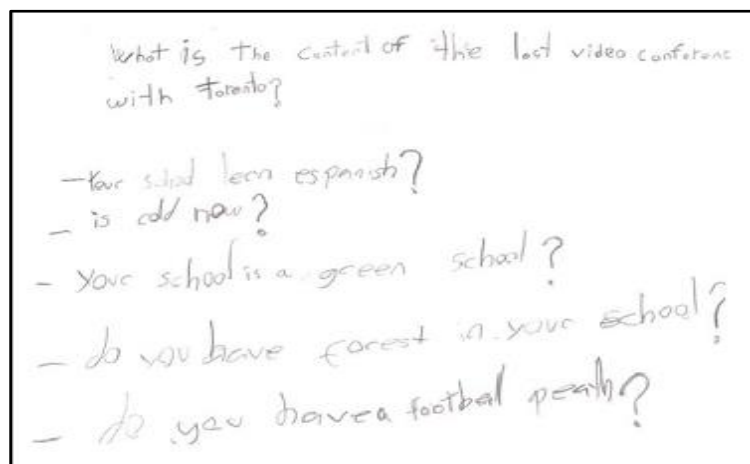 What is the content of the last video conferenc
with Toronto?
- Your school lern espanish?
- is cold now?
- Your school is a green school?
- do you have forest in your school?
- do you have a football peath?